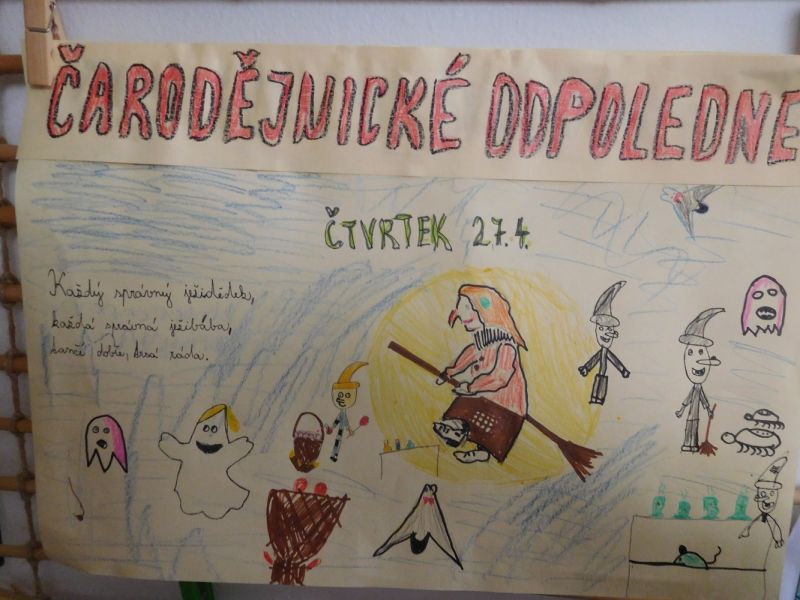 ČARODĚJNICKÉ ODPOLEDNE
ČTVRTEK 27.4.
Každý správný ježidědek,
každá správná ježibába,
tančí dobře, krsá ráda.